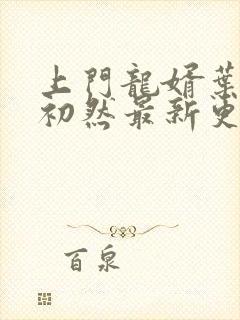 上門龍婿葉
初然最新更
百泉